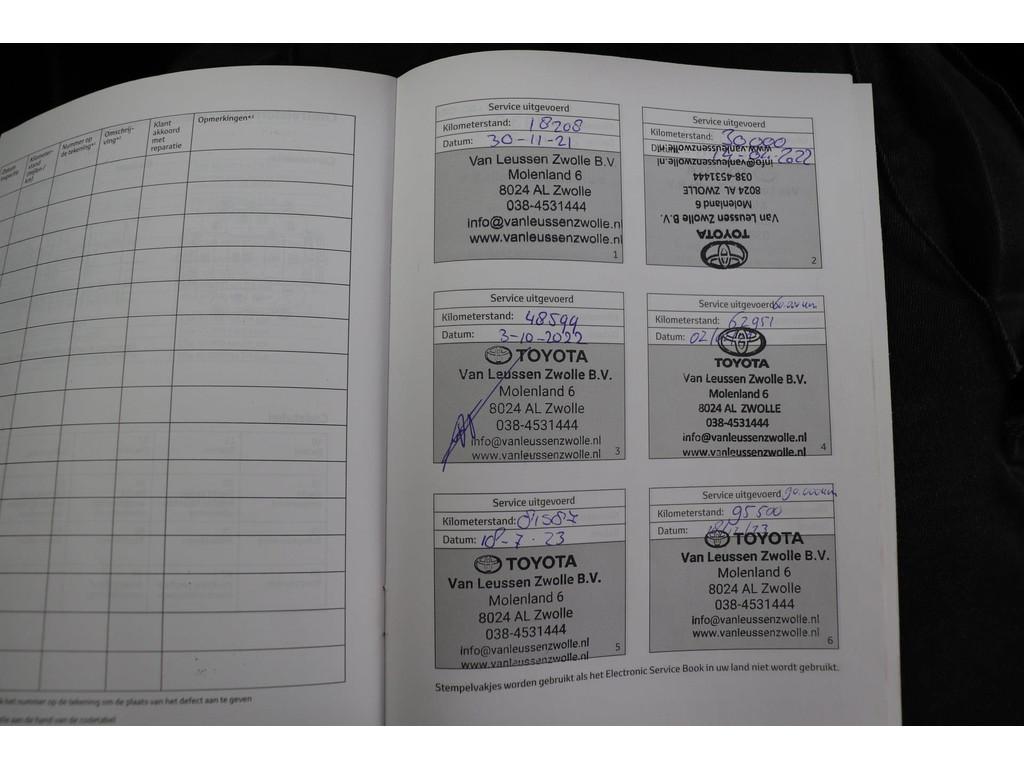 Datum inspectie
Kilometer-
stand
(mijlen /
km)
Nummer op
de tekening*¹
Omschrij-
ving*²
Klant
akkoord
met
reparatie
Opmerkingen*³
het nummer op de tekening om de plaats van het defect aan te geven
aan de hand van de codetabel
Service uitgevoerd
Kilometerstand: 18208
Datum: 30-11-21
Van Leussen Zwolle B.V
Molenland 6
8024 AL Zwolle
038-4531444
info@vanleussenzwolle.nl
www.vanleussenzwolle.nl
1
Service uitgevoerd
Kilometerstand: 30.000
Datum: 14-02-2022
TOYOTA
Van Leussen Zwolle B.V.
Molenland 6
8024 AL ZWOLLE
038-4531444
info@vanleussenzwolle.nl
www.vanleussenzwolle.nl
2
Service uitgevoerd
Kilometerstand: 48599
Datum: 3-10-2022
TOYOTA
Van Leussen Zwolle B.V.
Molenland 6
8024 AL Zwolle
038-4531444
info@vanleussenzwolle.nl
www.vanleussenzwolle.nl
3
Service uitgevoerd 60.000 km
Kilometerstand: 62951
Datum: 02/
TOYOTA
Van Leussen Zwolle B.V.
Molenland 6
8024 AL ZWOLLE
038-4531444
info@vanleussenzwolle.nl
www.vanleussenzwolle.nl
4
Service uitgevoerd
Kilometerstand: 81587
Datum: 18-7-23
TOYOTA
Van Leussen Zwolle B.V.
Molenland 6
8024 AL Zwolle
038-4531444
info@vanleussenzwolle.nl
www.vanleussenzwolle.nl
5
Service uitgevoerd 90.000 km
Kilometerstand: 95500
Datum: 18/12/23
TOYOTA
Van Leussen Zwolle B.V.
Molenland 6
8024 AL Zwolle
038-4531444
info@vanleussenzwolle.nl
www.vanleussenzwolle.nl
6
Stempelvakjes worden gebruikt als het Electronic Service Book in uw land niet wordt gebruikt.